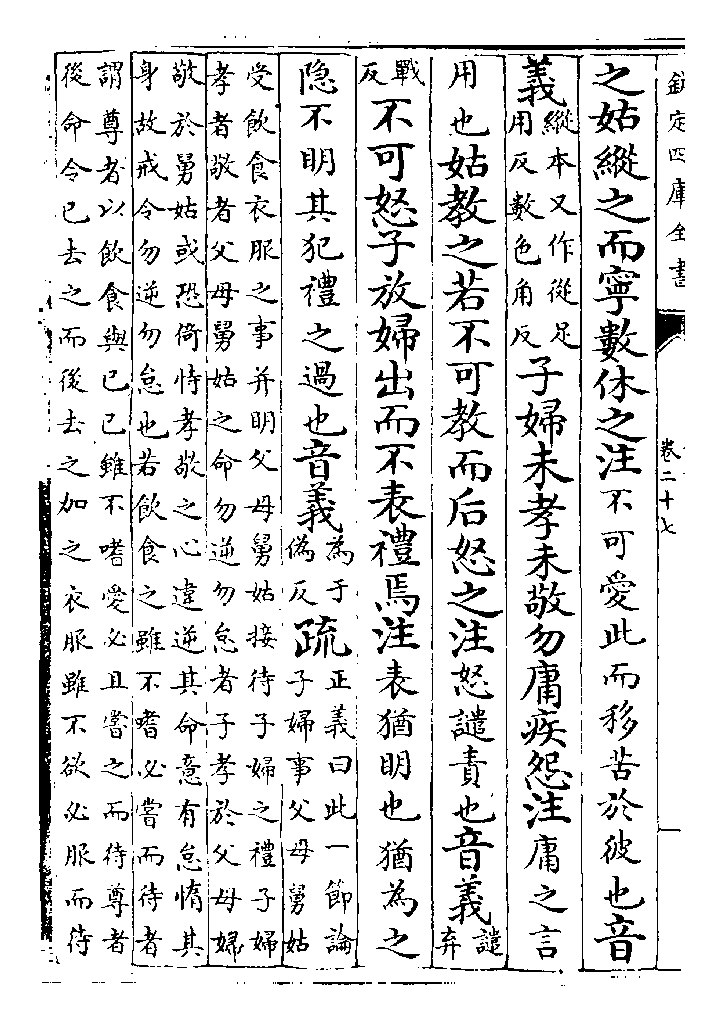 欽定四庫全書
卷二十七
之姑縱之而寧數休之注不可愛此而移苦於彼也音
義縱本又作從足用反數色角反子婦未孝未敬勿庸疾怨注庸之言
用也姑教之若不可教而后怒之注怒譴責也音義譴弃
戰反不可怒子放婦出而不表禮焉注表猶明也猶為之
隐不明其犯禮之過也音義為于偽反疏正義曰此一節論子婦事父母舅姑
受飲食衣服之事并明父母舅姑接待子婦之禮子婦
孝者敬者父母舅姑之命勿逆勿怠者子孝於父母婦
敬於舅姑或恐倚恃孝敬之心違逆其命意有怠惰其
身故戒令勿逆勿怠也若飲食之雖不嗜必嘗而待者
謂尊者以飲食與已已雖不嗜愛必且嘗之而待尊者
後命令已去之而後去之加之衣服雖不欲必服而待